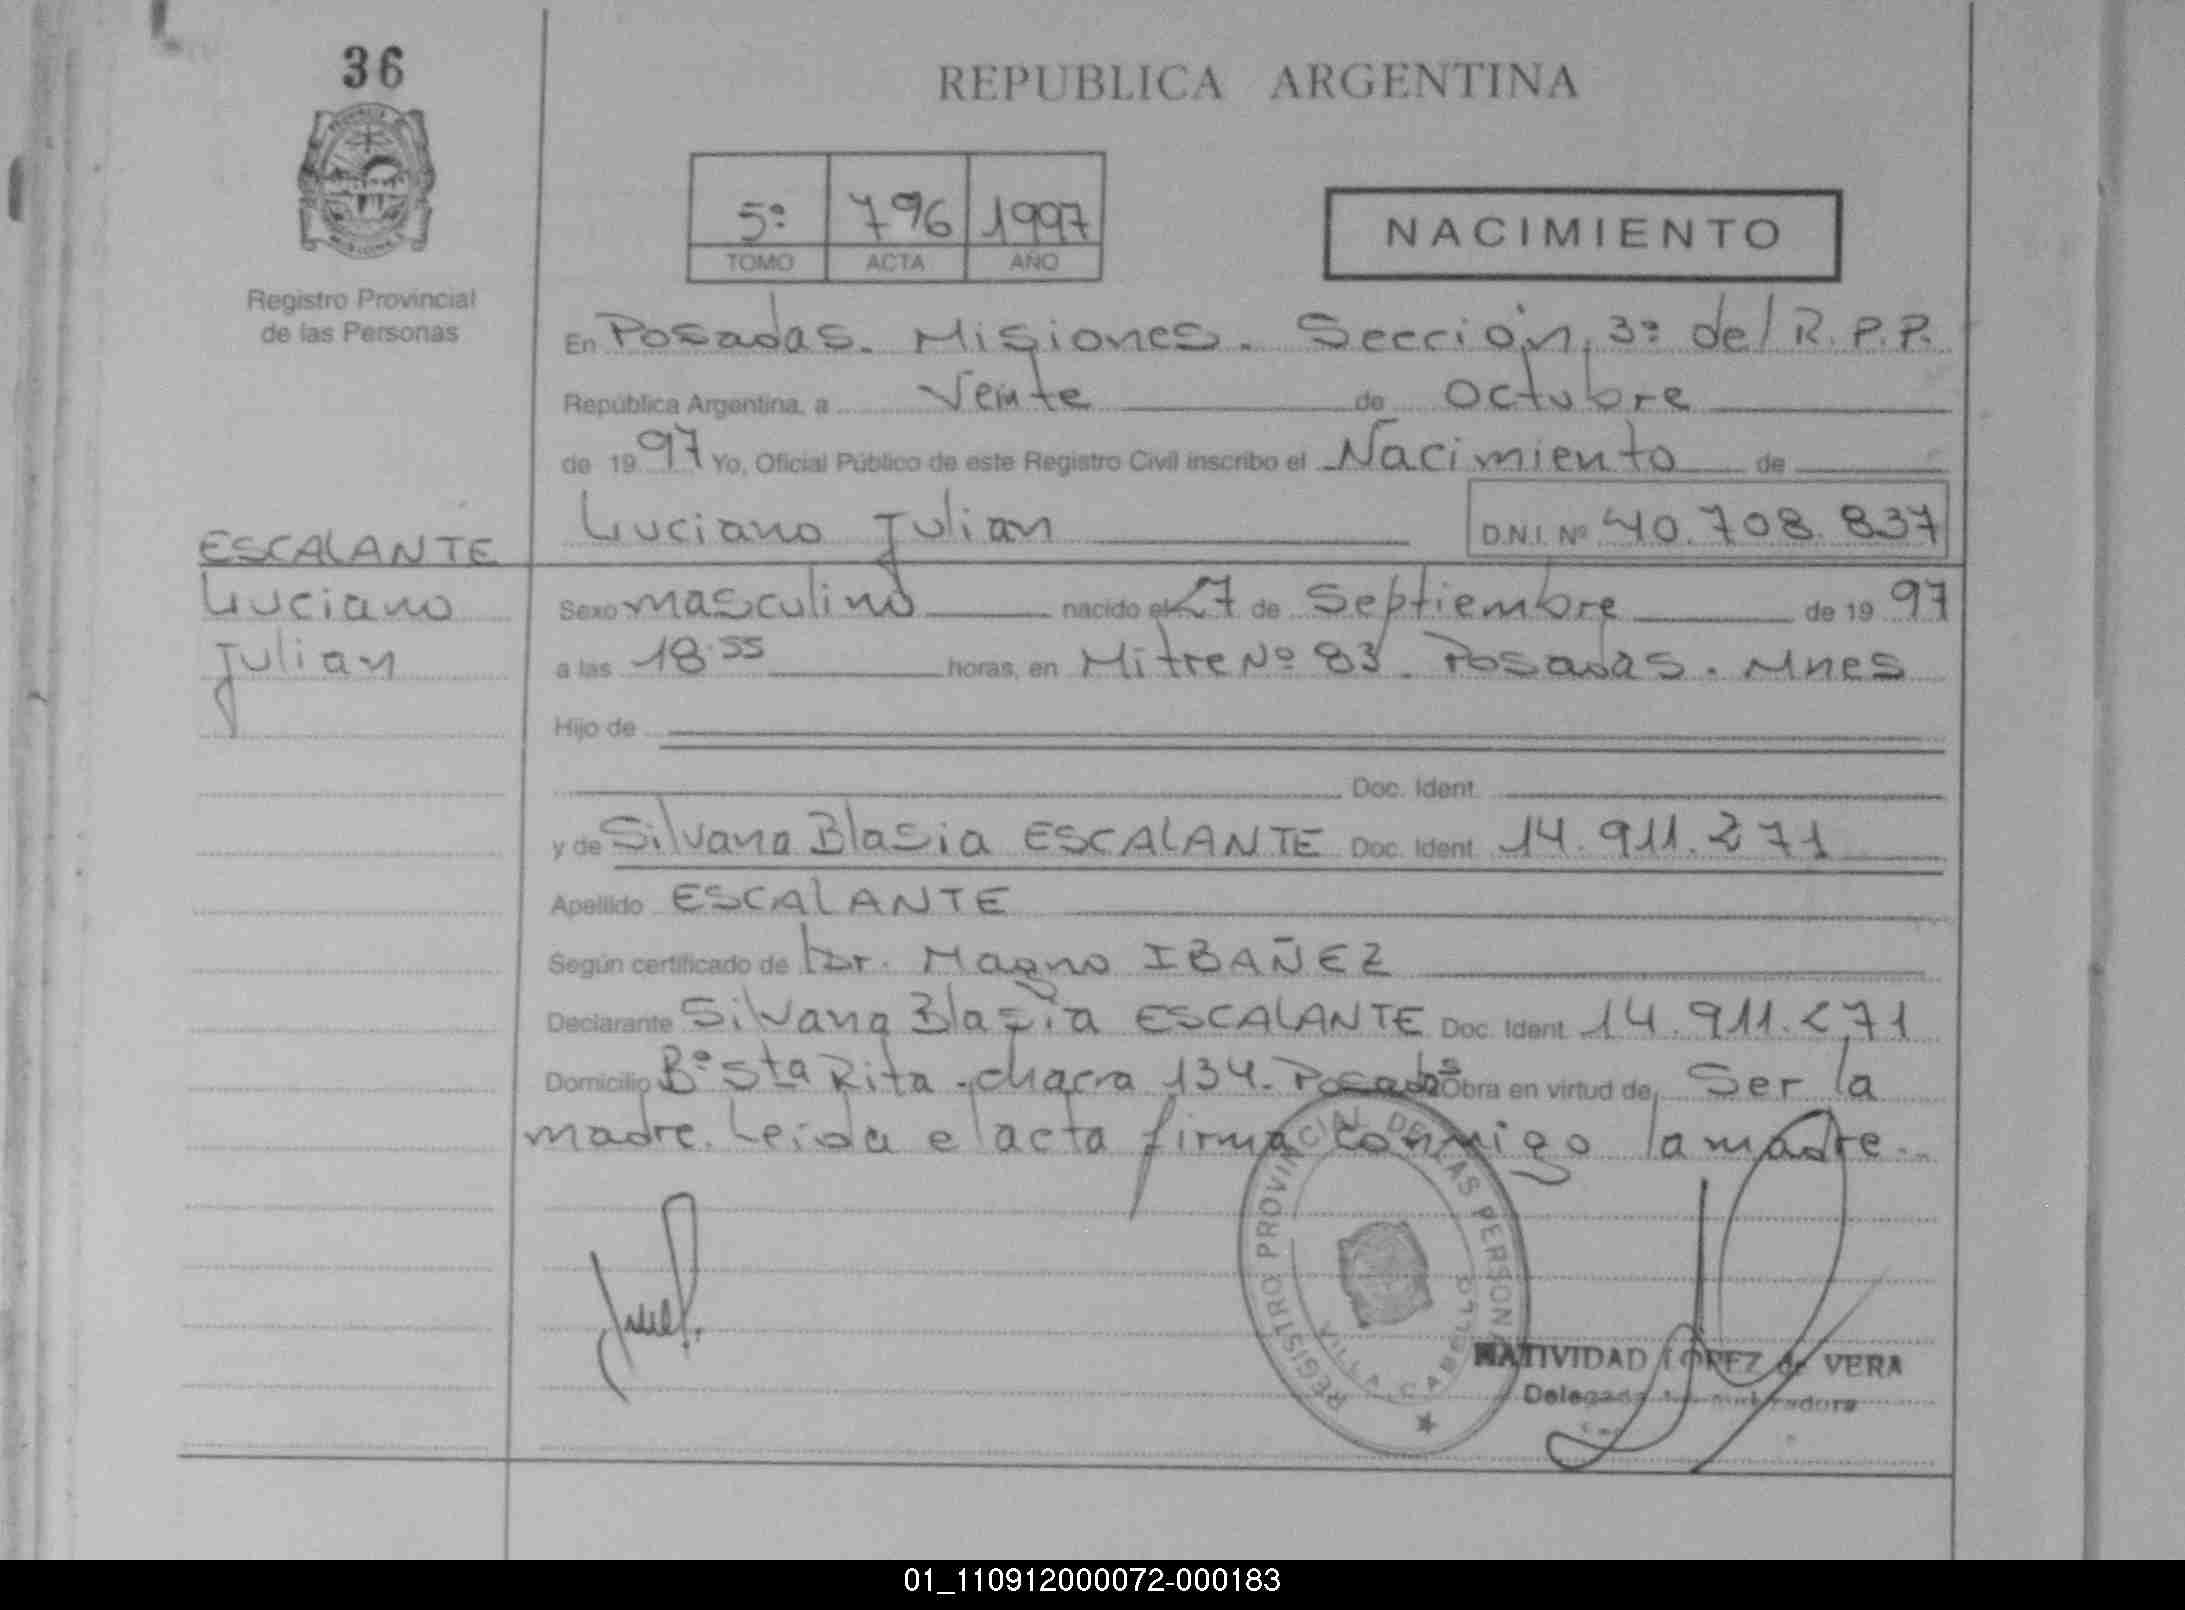 36
REPUBLICA ARGENTINA
5º 796 1997
TOMO ACTA AÑO
NACIMIENTO
Registro Provincial
de las Personas
En Posadas. Misiones. Sección, 3ª del R.P.P.
República Argentina, a Veinte de Octubre
de 1997 Yo, Oficial Público de este Registro Civil inscribo el Nacimiento de
Luciano Julian D.N.I. Nº 40.708.837
ESCALANTE
Luciano
Julian
Sexo masculino nacido el 27 de Septiembre de 1997
a las 18.55 horas, en Mitre Nº 83. Posadas. Mnes
Hijo de
Doc. Ident.
y de Silvana Blasia ESCALANTE Doc. Ident. 14.911.271
Apellido ESCALANTE
Según certificado de Dr. Magno IBAÑEZ
Declarante Silvana Blasia ESCALANTE Doc. Ident. 14.911.271
Domicilio Bº Sta Rita - chacra 134. Posadas Obra en virtud de Ser la
madre. Leida el acta firma conmigo la madre.
REGISTRO PROVINCIAL DE LAS PERSONAS
VILLA CABELLO
NATIVIDAD LOPEZ de VERA
Delegada
01_110912000072-000183